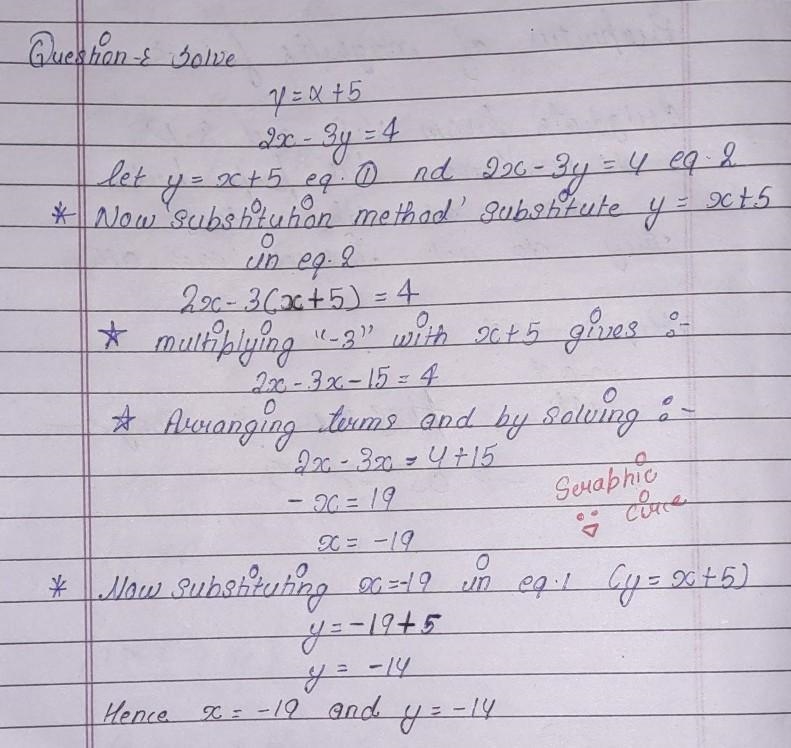 Question-: Solve
y = x + 5
2x - 3y = 4
let y = x+5 eq. ① nd 2x-3y = 4 eq. 2
* Now 'substitution method' substitute y = x+5
in eq. 2
2x - 3(x+5) = 4
☆ multiplying "-3" with x+5 gives :-
2x - 3x - 15 = 4
☆ Arranging terms and by solving :-
2x - 3x = 4+15
- x = 19
x = -19
Seraphic
Circe
* Now substituting x=-19 in eq.1 (y = x+5)
y = -19+5
y = -14
Hence x = -19 and y = -14